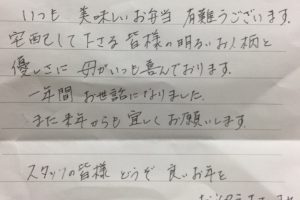 いつも 美味しいお弁当 有難うございます.
宅配して下さる皆様の明るいお人柄と
優しさに 母がいつも喜んでおります.
一年間 お世話になりました.
また来年からも宜しくお願いします.
スタッフの皆様 どうぞ 良いお年を